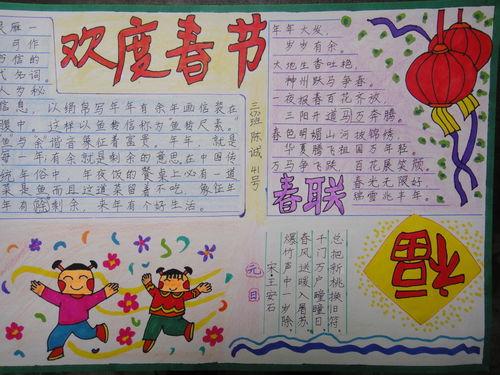 欢度春节
雁一
可作
写信的
代名词。
人岁秘
信息，以绢帛写年年有余年画信装在
眼中。这样以鱼转信称为“鱼转尺素。”
鱼与余谐音象征着富贵。年年，就是
每一年有余就是剩余的意思在中国传
统年俗中，年夜饭的餐桌上必有一道
菜是鱼而且这道菜留着不吃。象征年
年有剩余，来年有个好生活。
班 陈诚 41号
年年大发，
岁岁有余。
大地生香吐艳，
神州跃马争春。
一夜报春百花齐放，
三阳开道万马奔腾。
春色明媚山河披锦绣，
华夏腾飞祖国万年轻。
万马争飞跃，百花展笑颜。
春光无限好，
瑞雪兆丰年。
春联
元日
宋·王安石
爆竹声中一岁除，
春风送暖入屠苏。
千门万户曈曈日，
总把新桃换旧符。
福